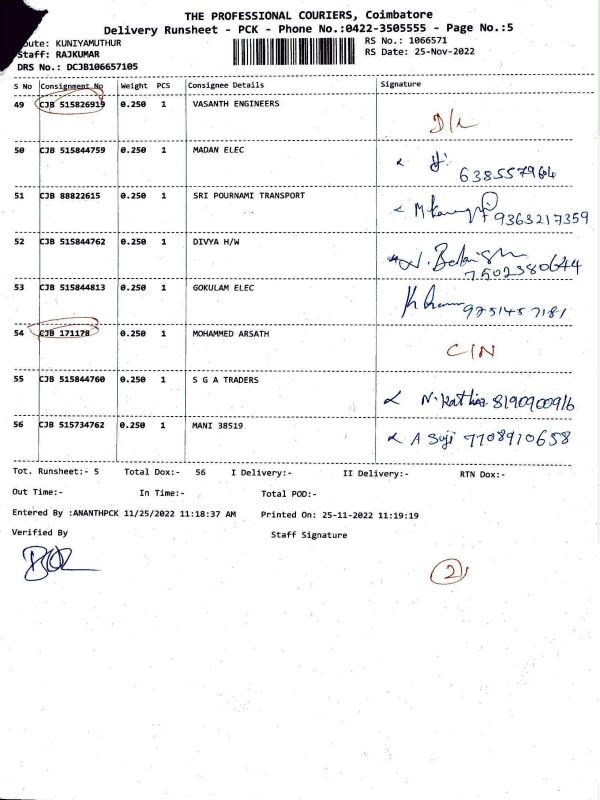 THE PROFESSIONAL COURIERS, Coimbatore
Delivery Runsheet - PCK - Phone No.:0422-3505555 - Page No.:5
oute: KUNIYAMUTHUR RS No.: 1066571
Staff: RAJKUMAR RS Date: 25-Nov-2022
DRS No.: DCJB106657105
S No Consignment No Weight PCS Consignee Details Signature
49 CJB 515826919 0.250 1 VASANTH ENGINEERS D/L
50 CJB 515844759 0.250 1 MADAN ELEC
638557964
51 CJB 88822615 0.250 1 SRI POURNAMI TRANSPORT
9363217359
52 CJB 515844762 0.250 1 DIVYA H/W
7502380644
53 CJB 515844813 0.250 1 GOKULAM ELEC
9751457181
54 CJB 171178 0.250 1 MOHAMMED ARSATH
C/N
55 CJB 515844760 0.250 1 S G A TRADERS
8190900916
56 CJB 515734762 0.250 1 MANI 38519
A Suji 7708910658
Tot. Runsheet:- 5 Total Dox:- 56 I Delivery:- II Delivery:- RTN Dox:-
Out Time:- In Time:- Total POD:-
Entered By :ANANTHPCK 11/25/2022 11:18:37 AM Printed On: 25-11-2022 11:19:19
Verified By Staff Signature
2